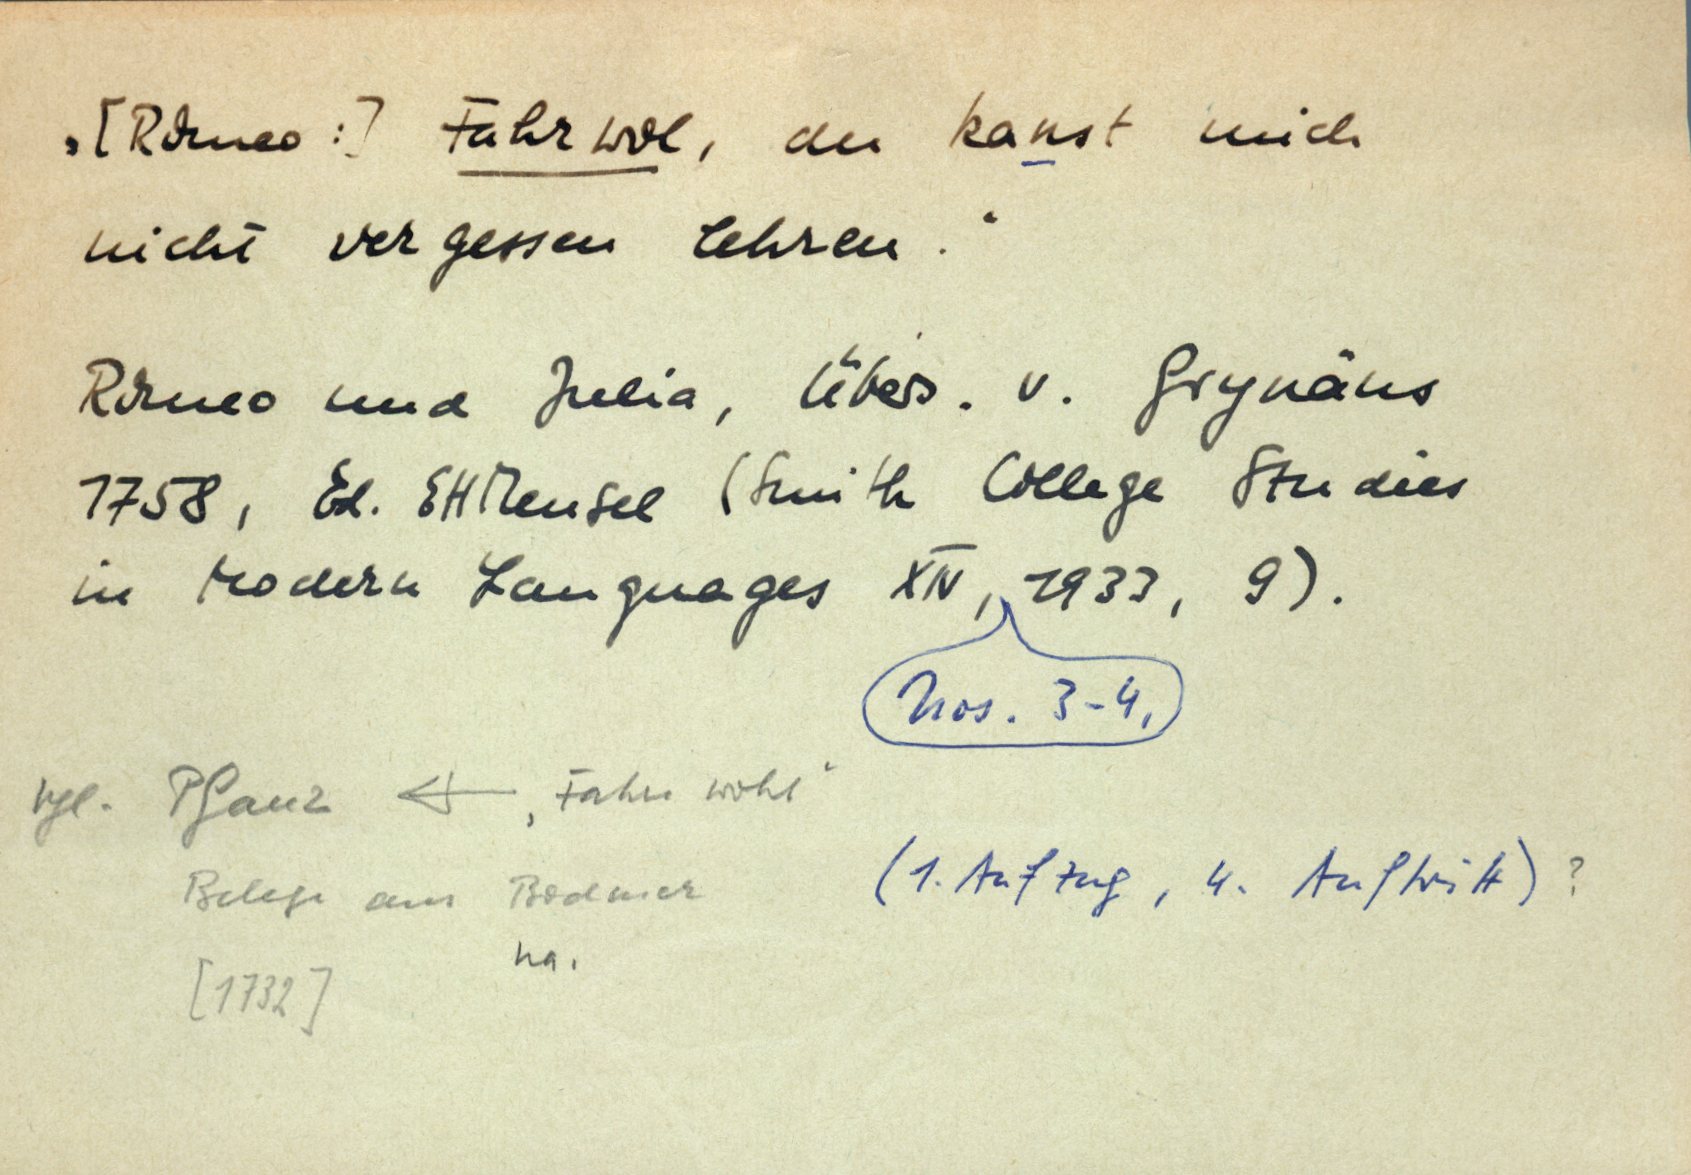 „[Romeo:] Fahrwol, du kanst mich
nicht vergessen lehren.“
Romeo und Julia, Übers. v. Grynäus
1758, Ed. EHMensel (Smith College Studies
in Modern Languages XIV, 1933, 9).
Nos. 3-4,
vgl. Pfanz ← „Fahr wohl“
Belege aus Bodmer
(1. Aufzug, 4. Auftritt) ?
na.
[1732]